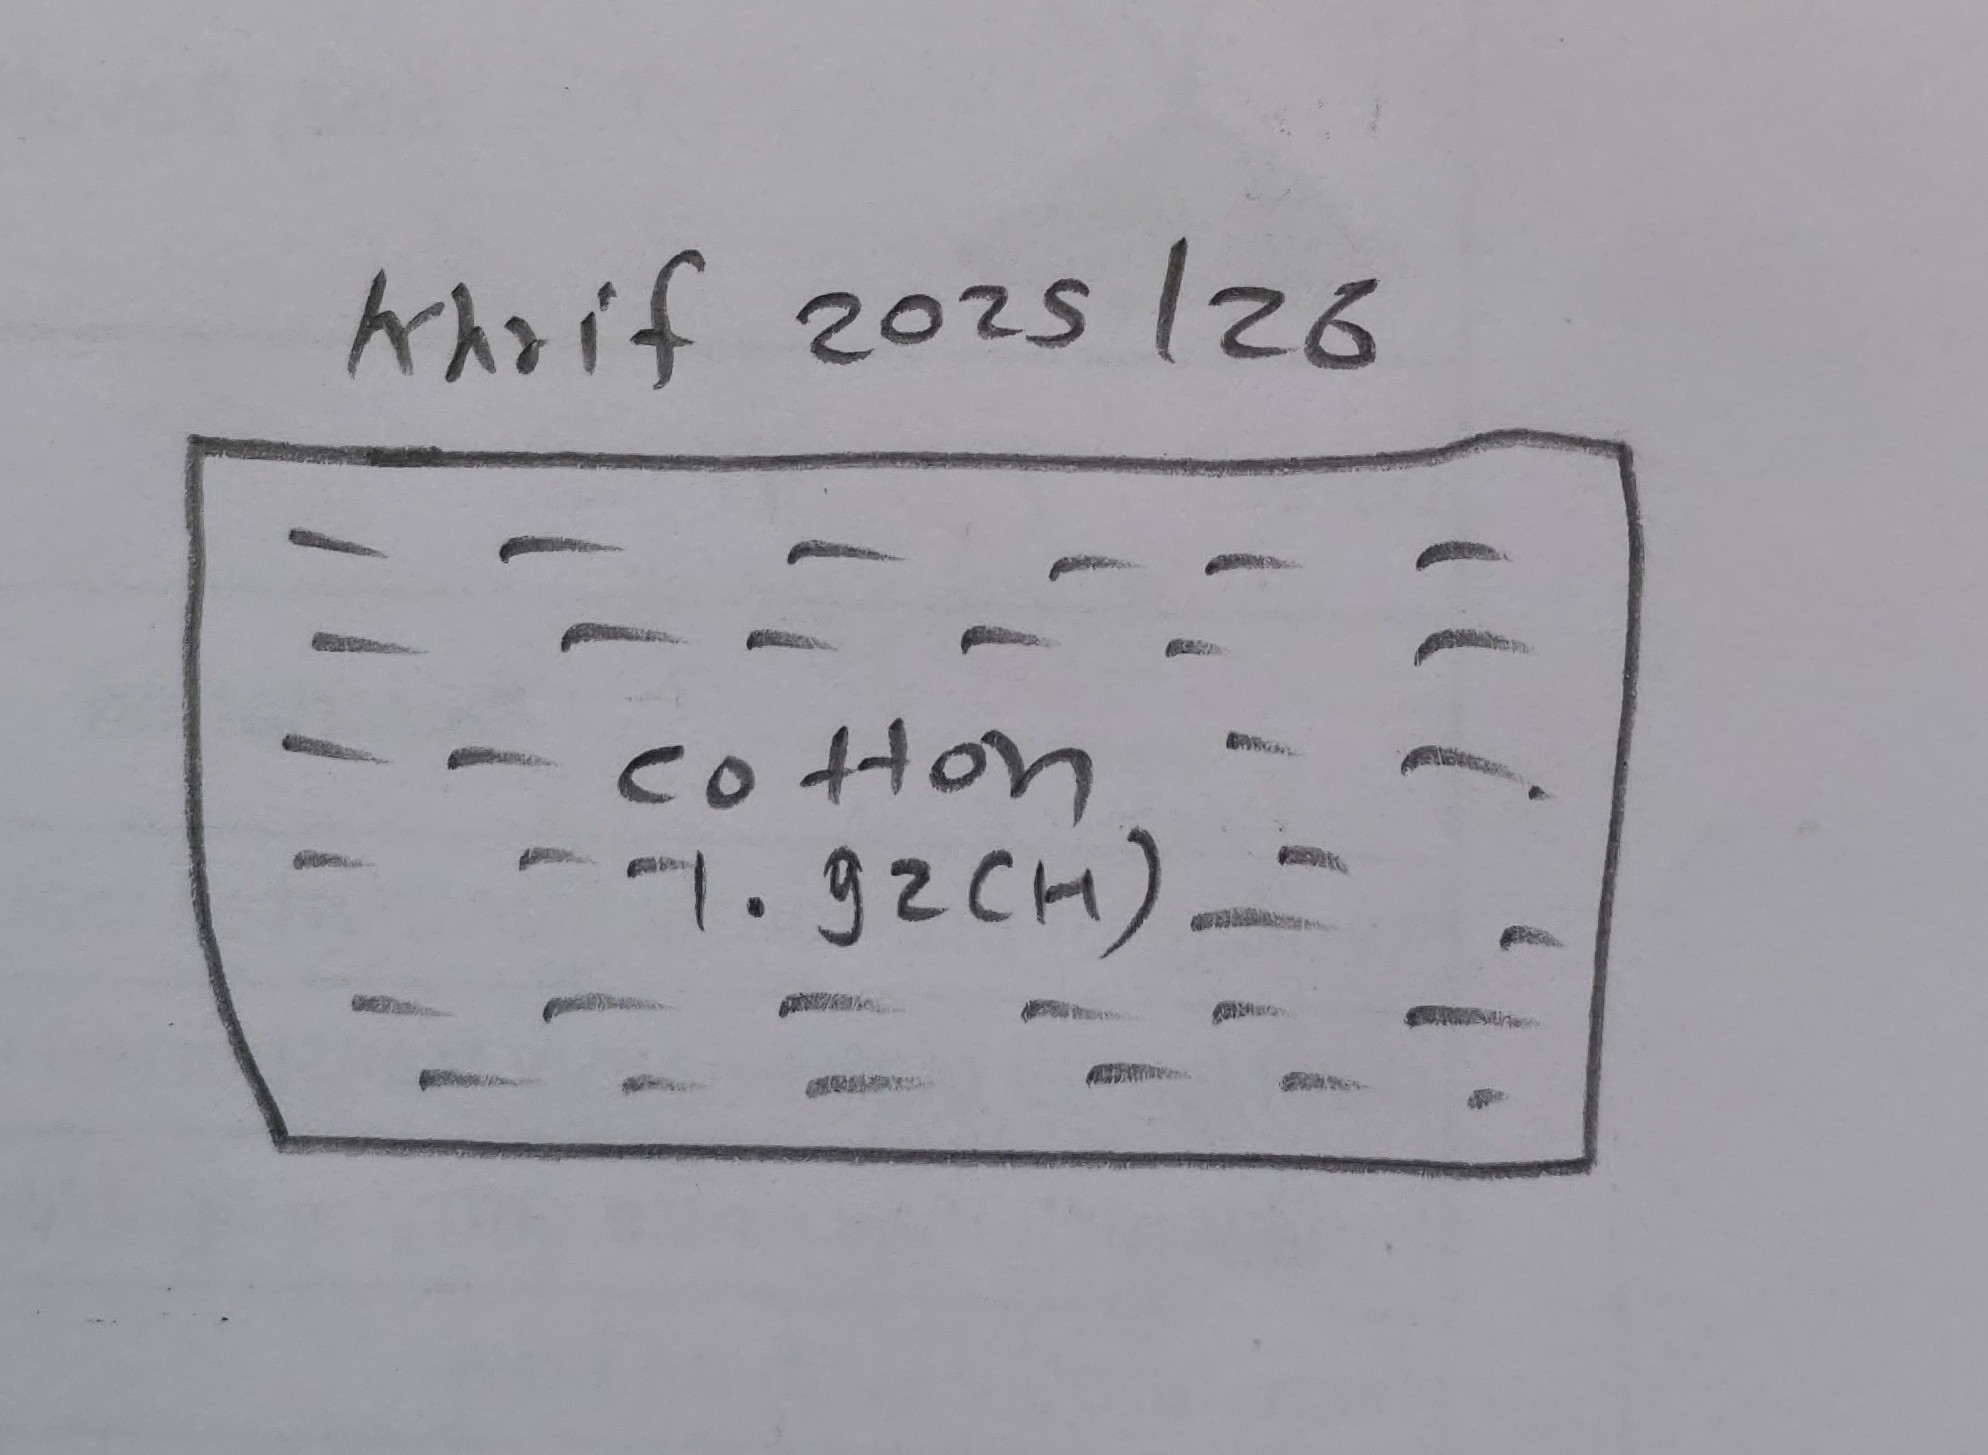 Khrif 2025/26
cotton
1.92(H)